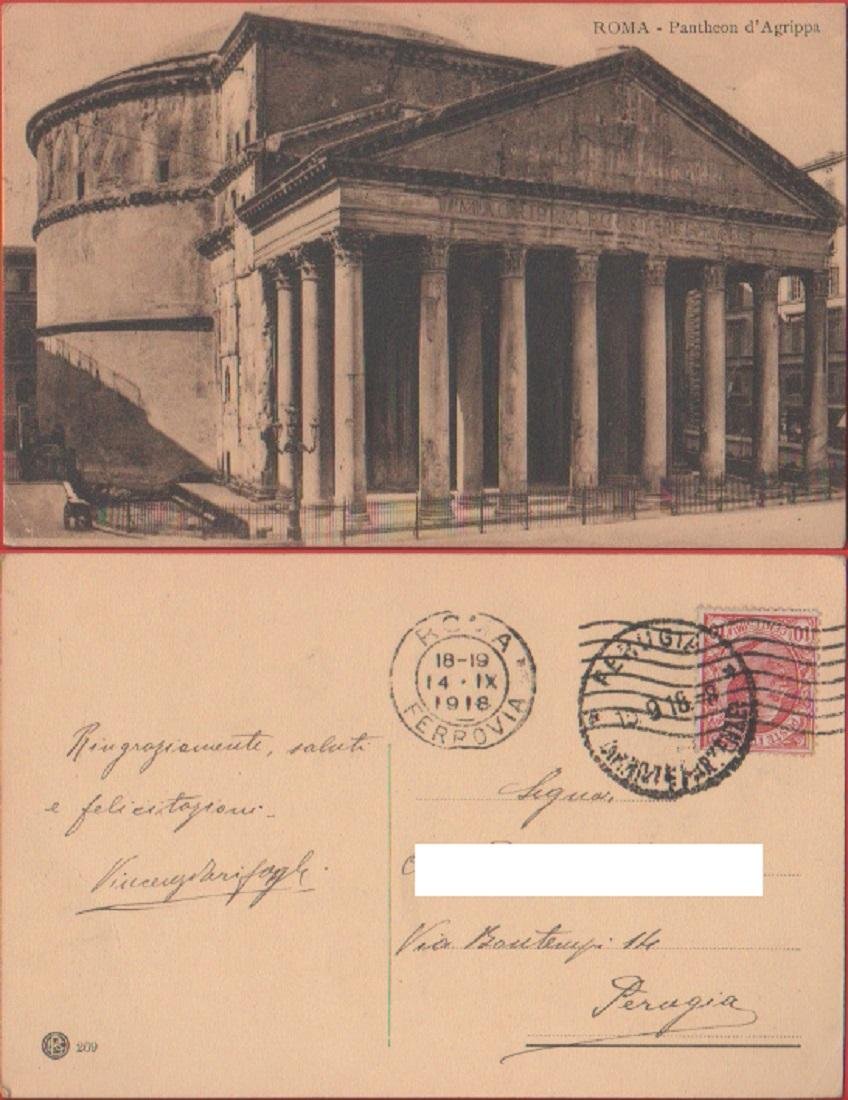 ROMA - Pantheon d'Agrippa
M·AGRIPPA·L·F·COS·TERTIVM·FECIT
ROMA
18-19
14·IX
1918
FERROVIA
PERUGIA
9 18
Ringraziamente, saluti
e felicitazioni.
Signor
Via Bontempi 14
Perugia
209